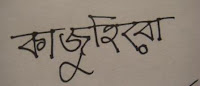 কাজুহিরো